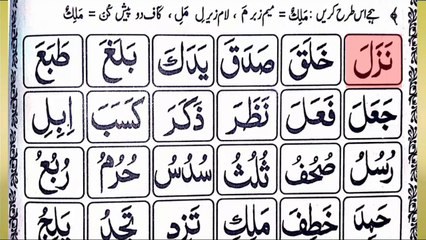 ہجے اس طرح کریں: مَلِكٌ = میم زبر مَ ، لام زیر لِ مَلِ ، کاف دو پیش كٌ = مَلِكٌ
نَزَلَ خَلَقَ صَدَقَ يَدَكَ بَلَغَ طَبَعَ
جَعَلَ فَعَلَ نَظَرَ ذَكَرَ كَسَبَ اِبِلِ
رُسُلُ صُحُفُ ثُلُثُ سُدُسُ حُرُمُ رُبُعُ
خَطِفَ مَلِكِ تَزِدِ تَجِدُ يَلِجُ